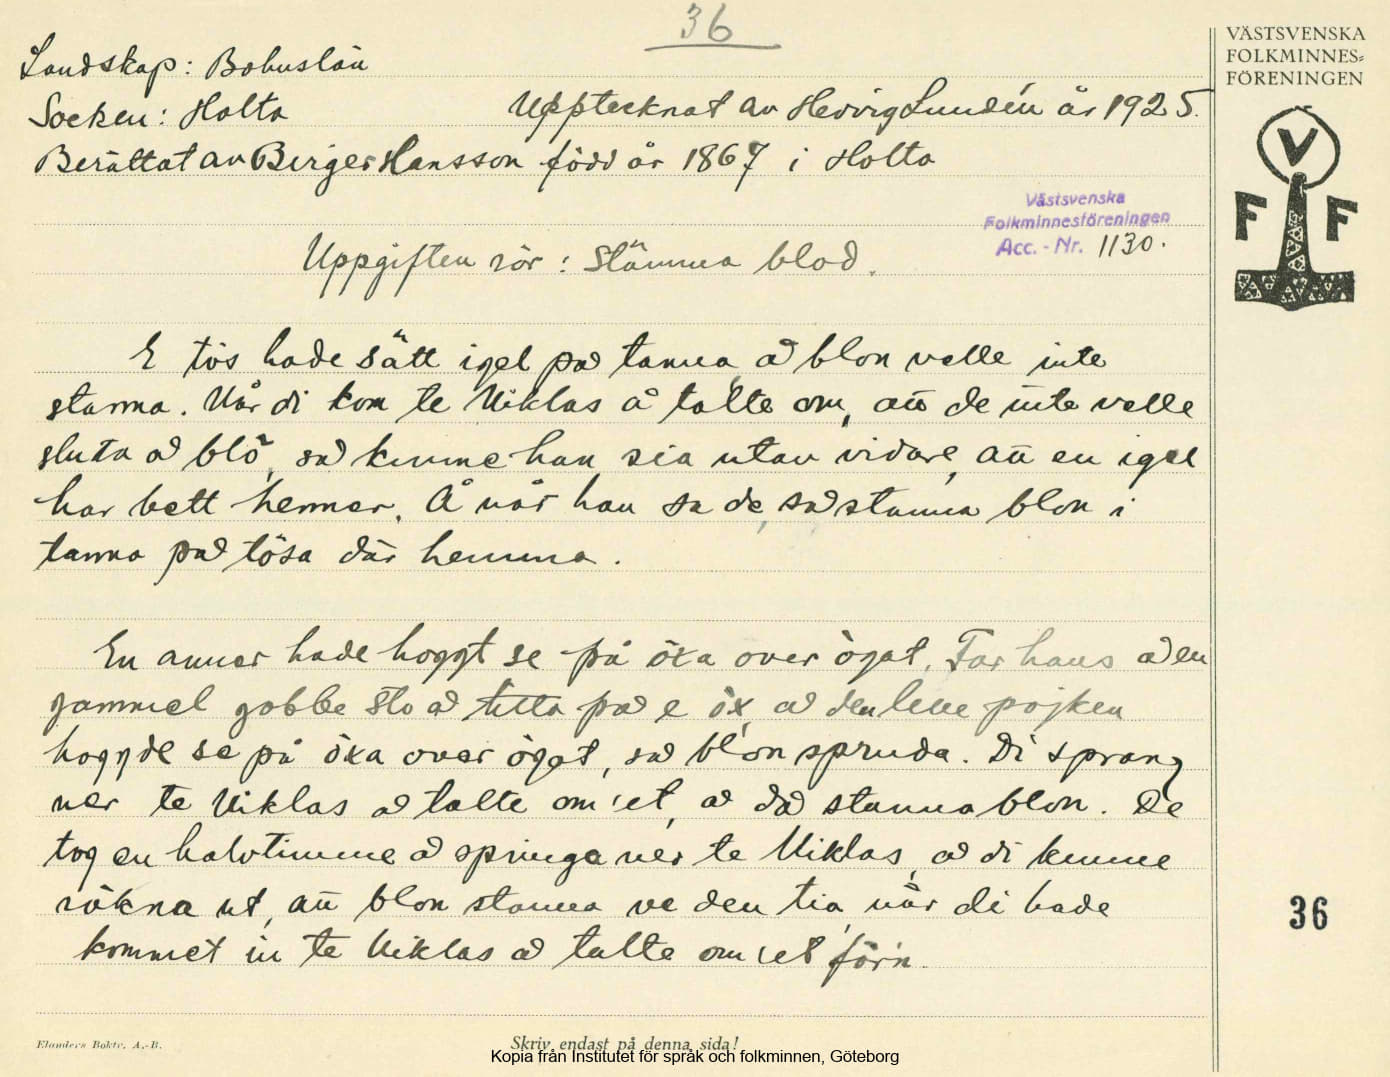 36
Landskap: Bohuslän
Socken: Holta
Upptecknat av Hedvig Lundén år 1925.
Berättat av Birger Hansson född år 1867 i Holta
VÄSTSVENSKA
FOLKMINNES-
FÖRENINGEN
V
F F
Västsvenska
Folkminnesföreningen
Acc. - Nr. 1130.
Uppgiften rör: Stämma blod.
E tös hade sätt igel på tanna, å blon velle inte
stanna. När di kom te Niklas å talte om, att de inte velle
sluta å blö, så kunne han sia utan vidare, att en igel
har bett henner. Å når han sa de, så stanna blon i
tanna på tösa där hemma.
En anner hade hoggt se på öxa over öget. Far hans å en
gammel gobbe sto å titta på e öx, å den lelle pojken
hoggde se på öxa over öget, så blon spruda. Di sprang
ner te Niklas å talte om'et, å då stanna blon. De
tog en halvtimme å springa ner te Niklas, å di kunne
räkna ut, att blon stanna ve den tia, när di hade
kommet in te Niklas å talte om'et för'n.
36
Elanders Boktr. A.-B.
Skriv endast på denna sida!
Kopia från Institutet för språk och folkminnen, Göteborg